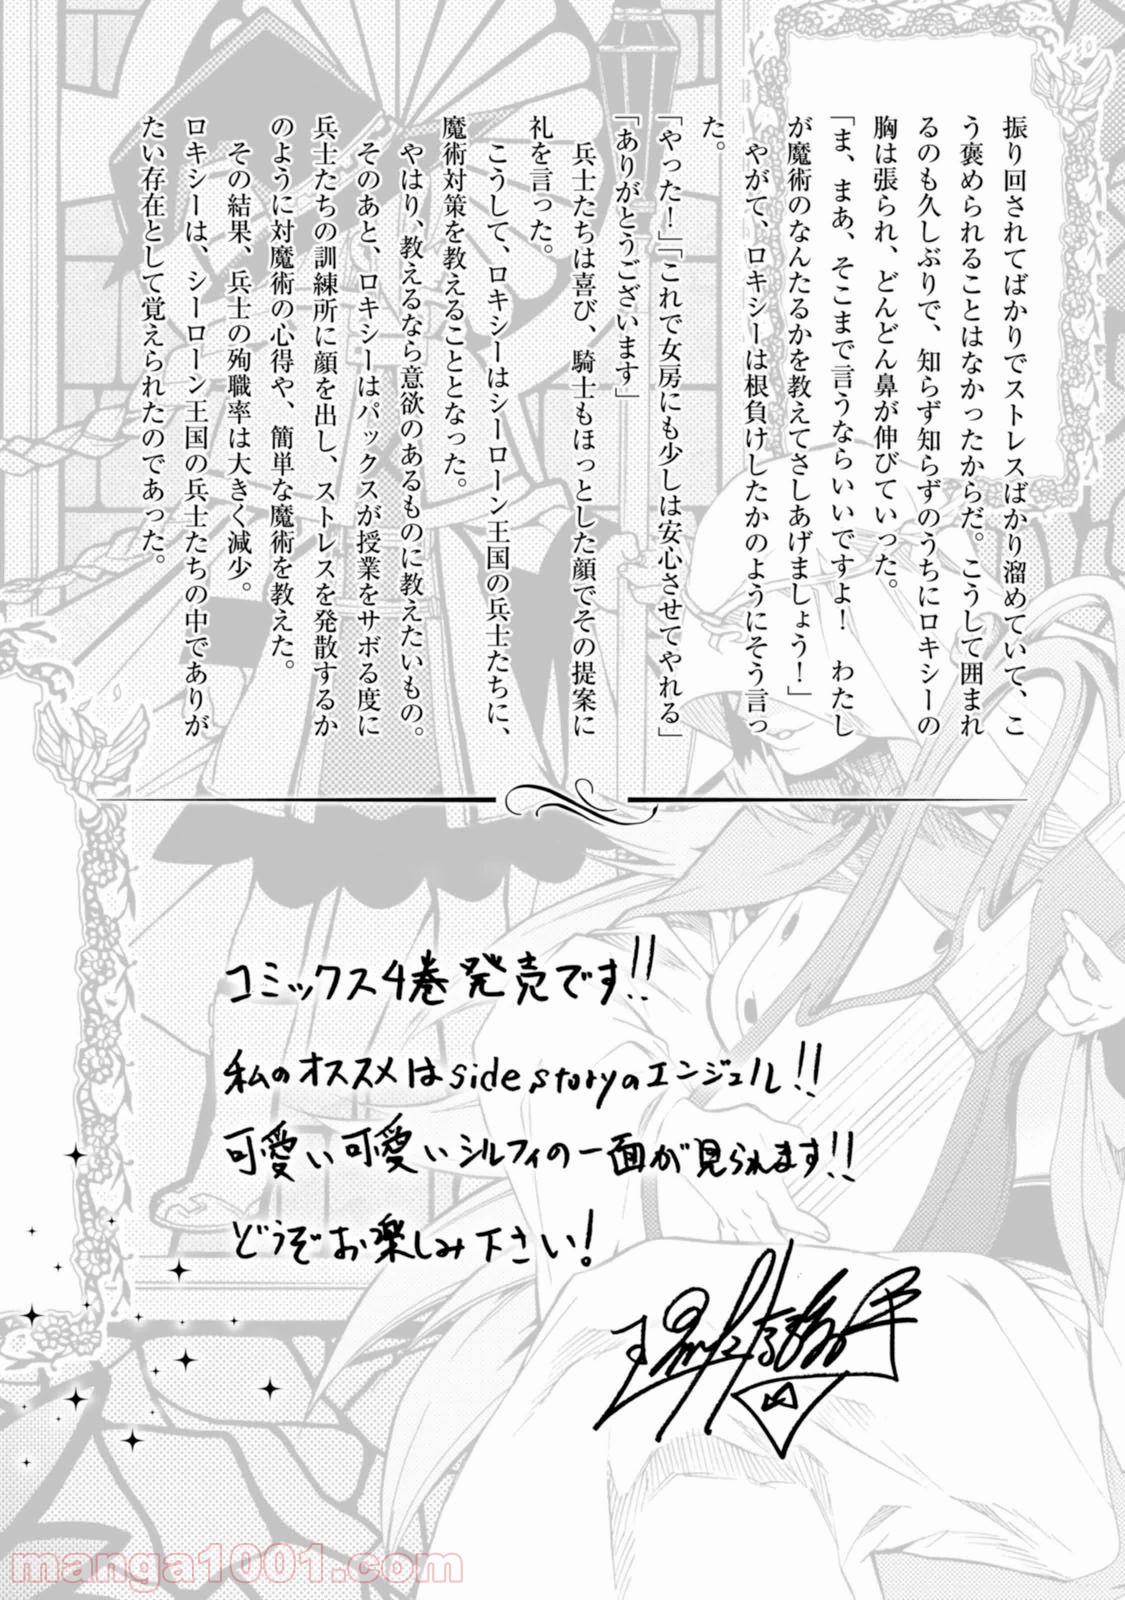 振り回されてばかりでストレスばかり溜めていて、こ
う褒められることはなかったからだ。こうして囲まれ
るのも久しぶりで、知らず知らずのうちにロキシーの
胸は張られ、どんどん鼻が伸びていった。
「ま、まあ、そこまで言うならいいですよ！　わたし
が魔術のなんたるかを教えてさしあげましょう！」
　やがて、ロキシーは根負けしたかのようにそう言っ
た。
「やった！」「これで女房にも少しは安心させてやれる」
「ありがとうございます」
　兵士たちは喜び、騎士もほっとした顔でその提案に
礼を言った。
　こうして、ロキシーはシーローン王国の兵士たちに、
魔術対策を教えることとなった。
　やはり、教えるなら意欲のあるものに教えたいもの。
　そのあと、ロキシーはパックスが授業をサボる度に
兵士たちの訓練所に顔を出し、ストレスを発散するか
のように対魔術の心得や、簡単な魔術を教えた。
　その結果、兵士の殉職率は大きく減少。
　ロキシーは、シーローン王国の兵士たちの中でありが
たい存在として覚えられたのであった。
コミックス4巻発売です!!
私のオススメはside storyのエンジェル!!
可愛い可愛いシルフィの一面が見られます!!
どうぞお楽しみ下さい!
manga1001.com